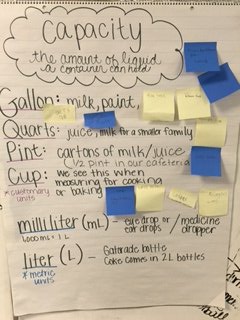 Capacity
the amount of liquid
a container can hold
Gallon: milk, paint,
Quarts: juice, milk for a smaller family
Pint: cartons of milk/juice
1/2 pint in our cafeteria
Cup: We see this when
measuring for cooking
or baking
*customary
units
milliliter (mL) - eye drop or / medicine
ear drops / dropper
1,000 mL = 1 L
liter (L) - Gatorade bottle
Coke comes in 2L bottles
*metric
units